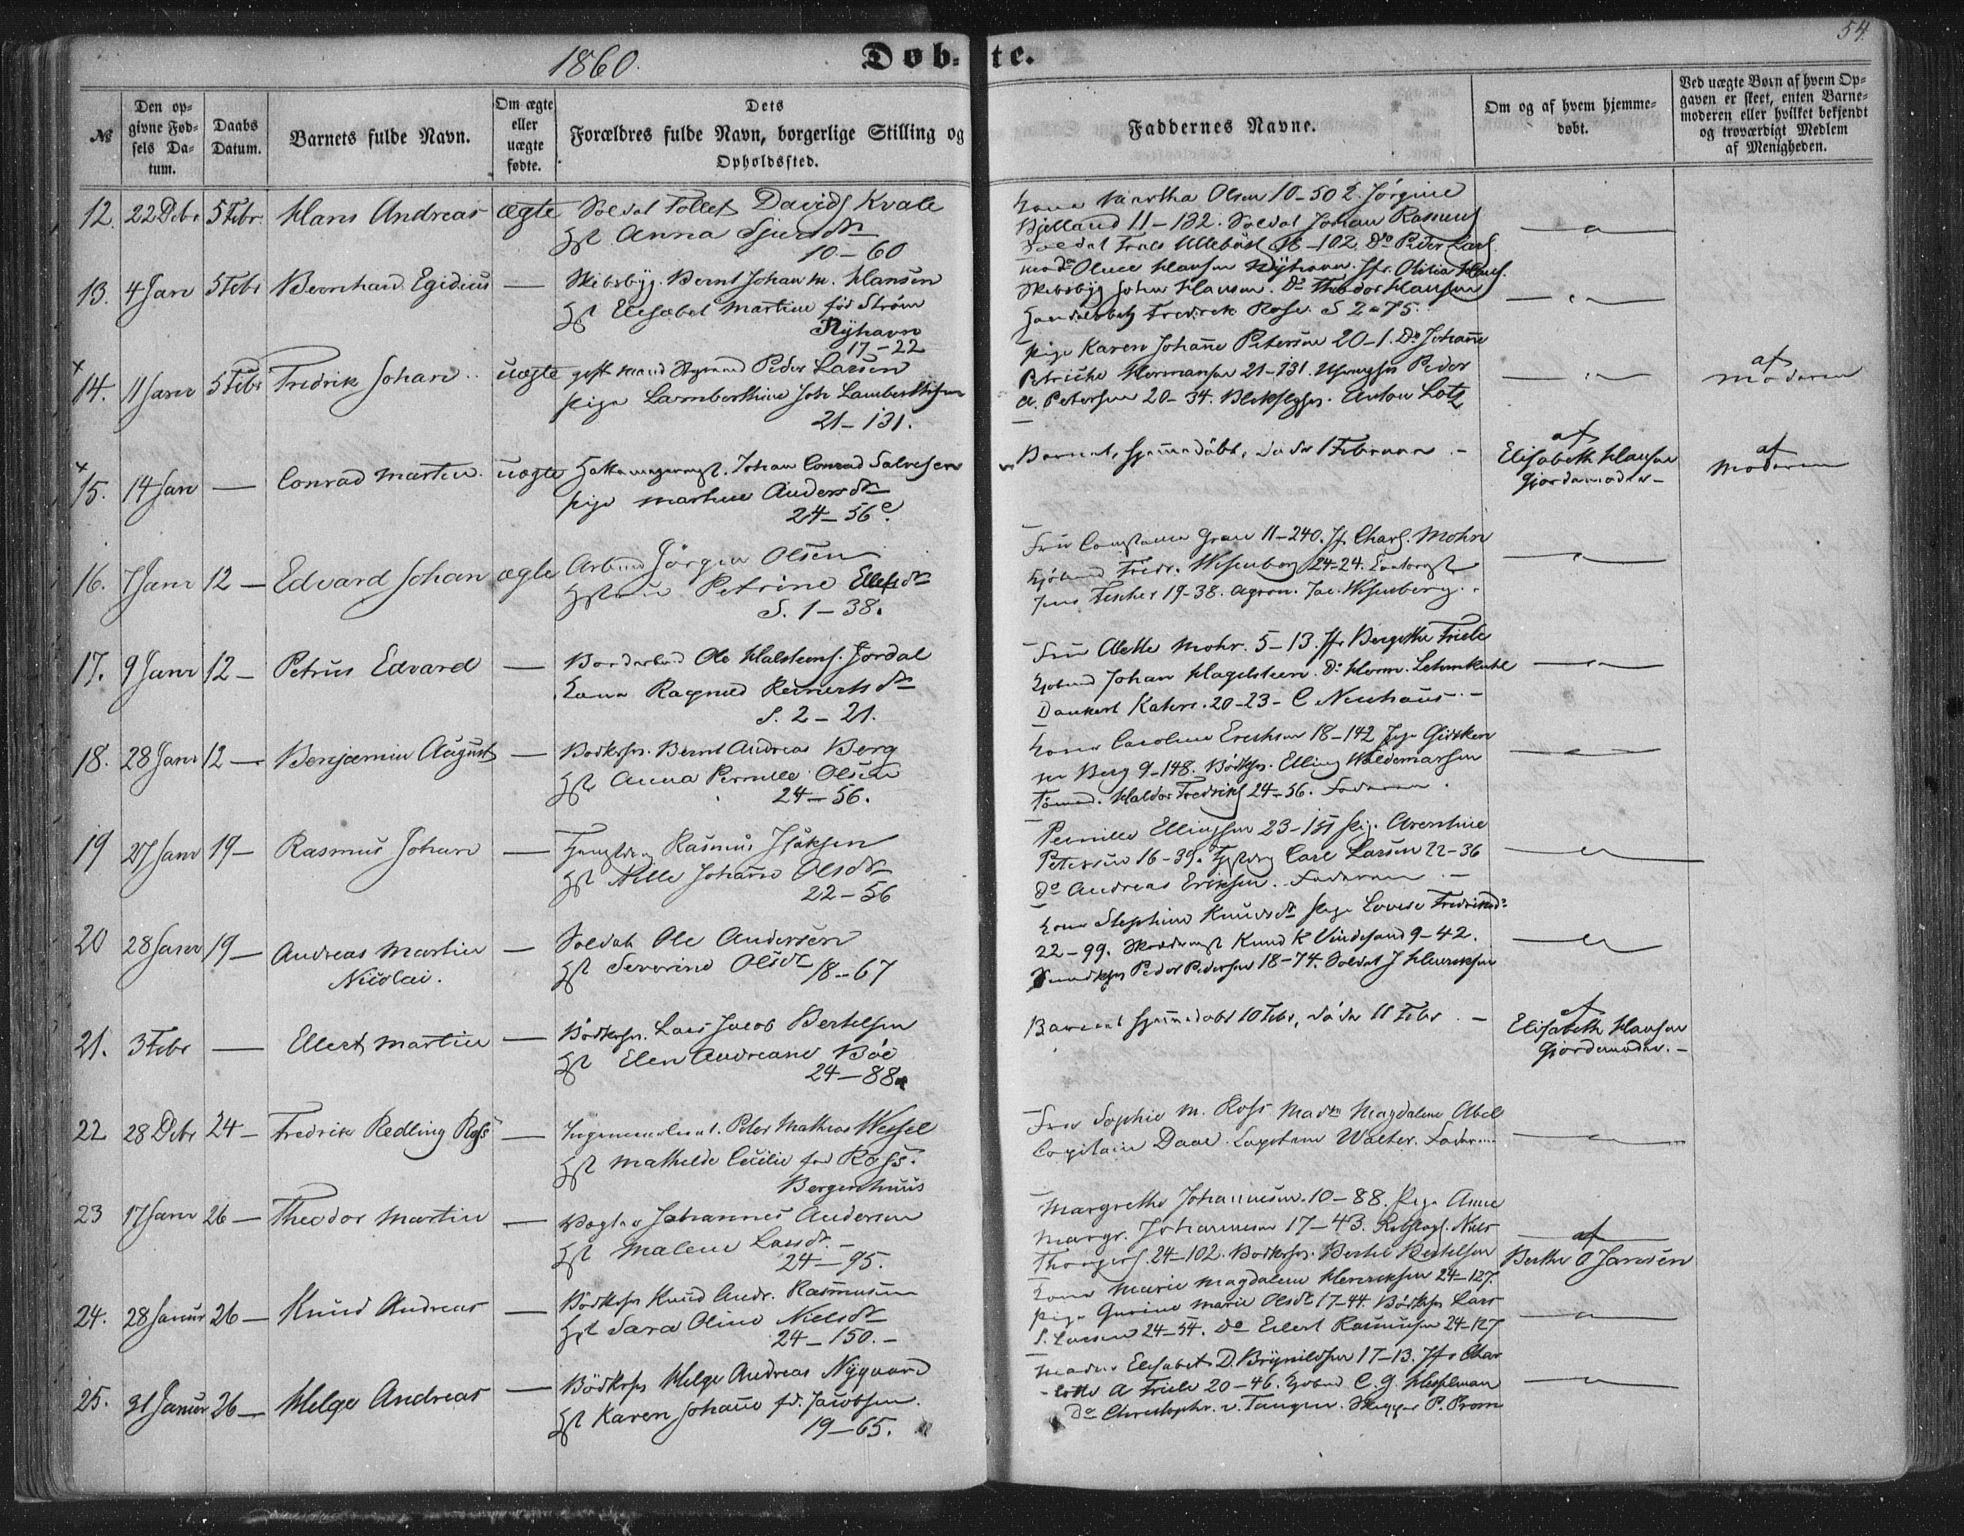 54
1860.
Døb-te.
№
Den opgivne Fødsels Datum.
Daabs Datum.
Barnets fulde Navn.
Om ægte eller uægte fødte.
Dets Forældres fulde Navn, borgerlige Stilling og Opholdssted.
Faddernes Navne.
Om og af hvem hjemmedøbt.
Ved uægte Børn af hvem Opgaven er skeet, enten Barnemoderen eller hvilket bekjendt og troværdigt Medlem af Menigheden.
12. 22 Debr 5 Febr. Hans Andreas ægte Soldat Tollef Davids Kvale
Hst Anna Sjursdr
10-60
Kone Martha Olsen 10-50 Jørgine
Bjelland 11-132. Soldat Johan Rasmus
Soldat 18-102. Do Peder Lars
13. 4 Janr 5 Febr Bernhard Egidius — Skibsbyg. Bernt Johan M. Hansen
Hst Elisabet Martine fød Strøm
Nyhavn
17-22
Mad Oluce Hansen Nyhavn. Jfr. Otilia Hans.
Skibsbyg Johan Hansen. Do Theodor Hansen
Fredrik Rose. S 2-75.
14. 11 Janr 5 Febr Fredrik Johan uægte gift Mand Styrmand Peder Larsen
Pige Lamberthine Joh Lamberthsen
21-131.
Pige Karen Johane Petersen 20-1. Do Johanne
Petricke Hermansen 21-131. Peder
A. Petersen 20-34. Anton Lotz
af
Moderen
15. 14 Jan — Conrad Martin uægte Johan Conrad Salvesen
Pige Martine Andersdr
24-56c.
Barnet hjemmedøbt, døde 1 Februar.
af
Elisabeth Hansen
Gjordemoder
af
Moderen
16. 7 Janr 12 — Edvard Johan ægte Arbmd Jørgen Olsen
Petrine Ellefsdr
S. 1-38.
Fru Constance Gran 11-240. Jfr Charl. Mohn
Kjøbmd Fredr. Wesenberg 24-24.
Jens Fischer 19-38. Agron. Jac. Wesenberg.
17. 9 Janr 12 — Petrus Edvard — Bordarbmd Ole Halstens. Jordal
Kone Ragnild Reinertsdr
S. 2-21.
Fru Alette Mohr. 5-13. Jfr Bergithe Friele
Kjøbmd Johan Hagelsteen. Do Herm. Lehmkuhl
Dankert Kahrs. 20-23- C Neuhaus.
18. 28 Janr 12 — Benjamin August — Bødkersv. Bernt Andreas Berg
Hst Anna Pernille Olsen
24-56.
Kone Caroline Erichsen 18-142 Pige
Berg 9-148. Bødksv. Elling Waldemarsen
Tømmd. Haldor Fredriks 24-56. Faderen.
19 27 Janr 19 — Rasmus Johan — Rasmus Isaksen
Hst Nille Johanne Olsdr
22-56
Pernille Ellingsen 23-151 Pig. Arentine
Petersen 16-39. Carl Larsen 22-36
Do Andreas Eriksen. Faderen
20 28 Janr 19 — Andreas Martin
Nicolai. — Soldat Ole Andersen
Hst Severine Olsdr 18-67
Kone Stephine Knudsdr Pige Lovise Fredriksdr
22-99. Knud K Vindesand 9-42.
Peder Pedersen 18-74. Soldat J Henriksen
21. 3 Febr — Ellert Martin — Bødkersv. Lars Jacob Bertelsen
Hst Elen Andreane Bøe
24-88
Barnet hjemmedøbt 10 Febr, døde 11 Febr
af
Elisabeth Hansen
Gjordemoder.
22 28 Debr 24 — Fredrik Redling Ross — Peter Mathias Wessel
Hst Mathilde Cecilie fød Ross.
Bergenhuus
Fru Sophie M. Ross Madm Magdalene Abel
Capitain Daae. Capitain Walter. Faderen
23 17 Janr 26 — Theodor Martin — Vægter Johannes Andersen
Hst Malene Larsdr.
24-95.
Margrethe Johannesen. 10-88. Pige Anne
Margr. Johannesen 17-43. Rebslag. Niels
24-102. Bødkersv. Bertel Bertelsen
af
Berthe O Jansen
24. 28 Janur 26 — Knud Andreas — Bødkersv Knud Andr. Rasmusen
Hst Sara Oline Nielsdr
24-150.
Kone Marie Magdalene Henriksen 24-127.
Pige Gurine Marie Olsdr 17-44. Bødksv Lars
S. Larsen 24-54. Do Eilert Rasmusen 24-127
25. 31 Janur 26 — Helge Andreas — Bødkersv Helge Andreas Nygaard
Hst Karen Johanne fd. Jacobsen.
19-65.
Madm Elisabet D. Brynildsen 17-13. Jfr Char
lotte A Friele 20-46. Kjøbmd C. G. Hesselman
Do Christopher. v. Tangen. P. Prom